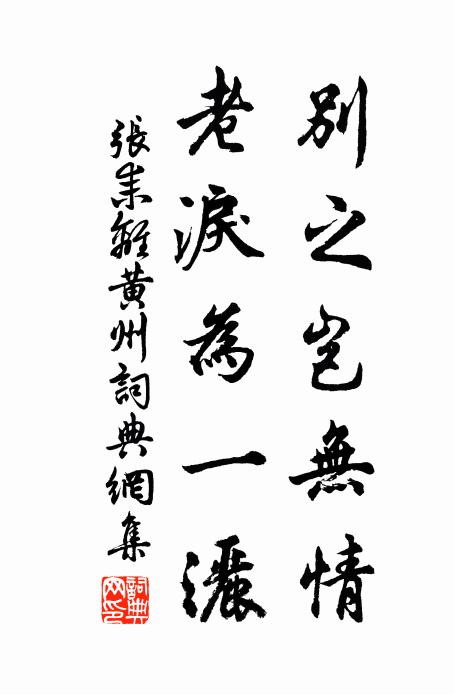 別之豈無情
老淚為一灑
張耒離黃州詞典網集
詞典
网印